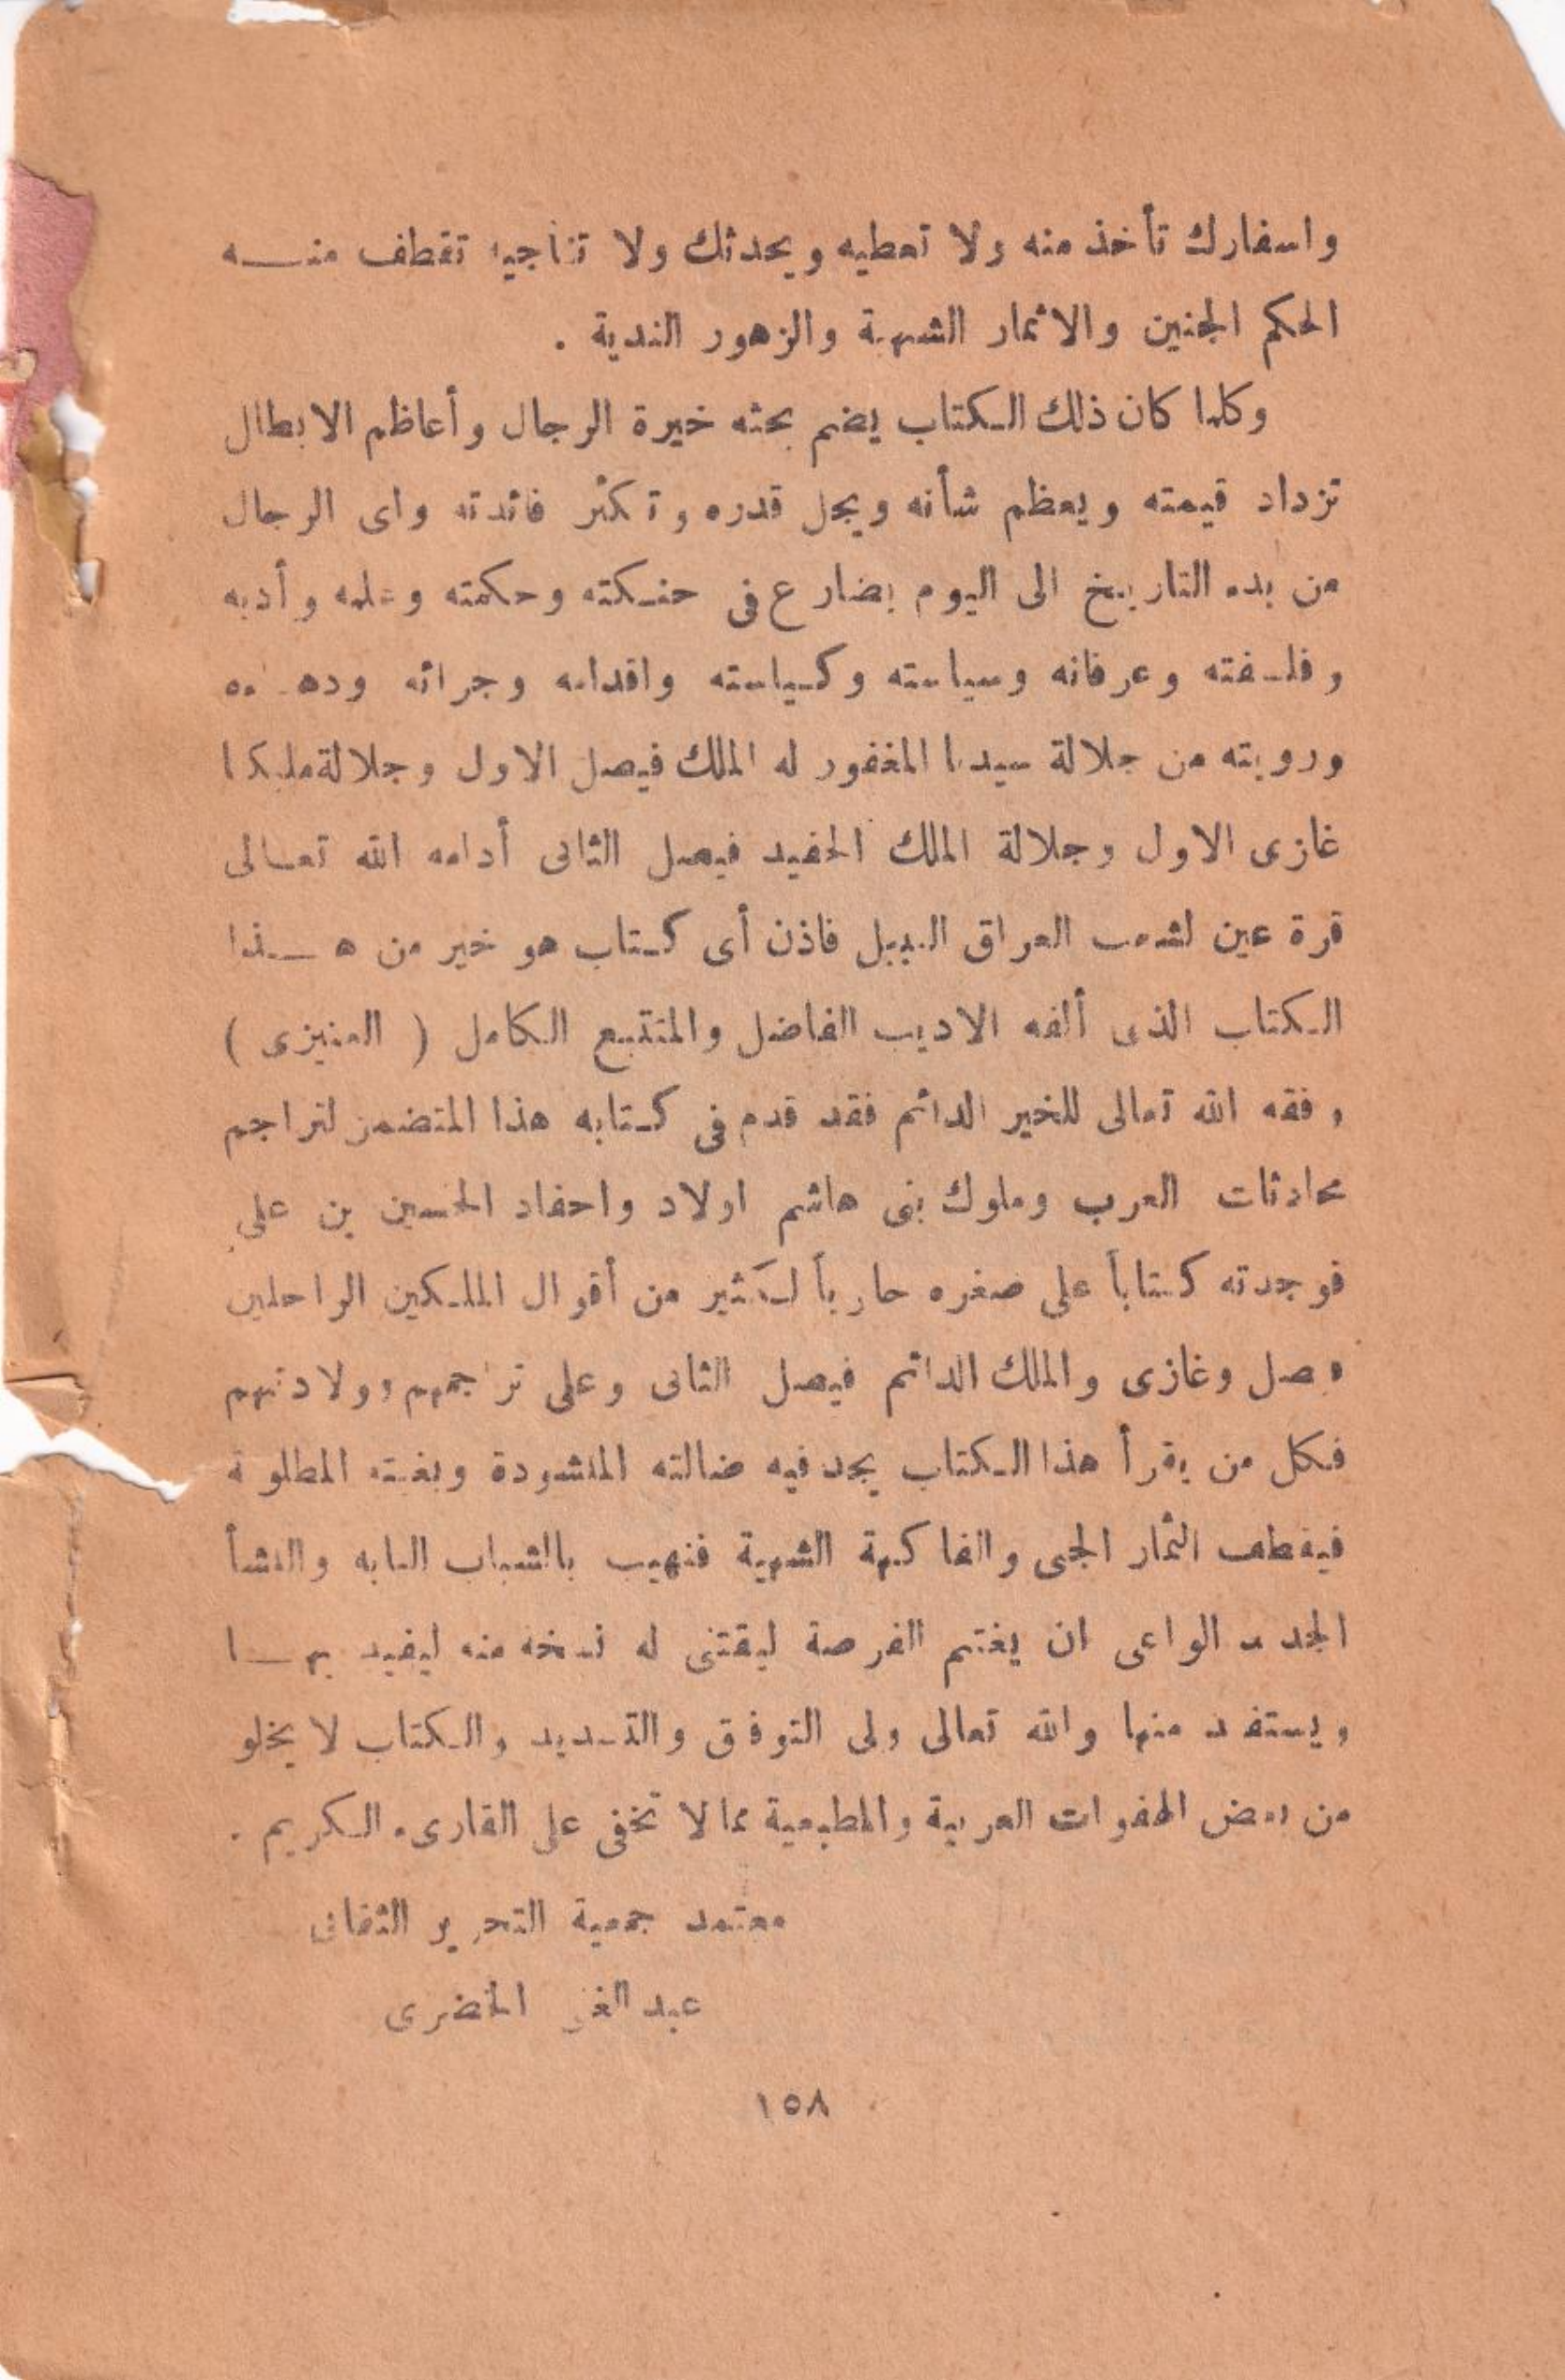 واسفارك تأخذ منه ولا تعطيه ويحدثك ولا تناجيه تقطف منه
الحكم الجنين والاثمار الشهية والزهور الندية .
وكلما كان ذلك الكتاب يضم بحثه خيرة الرجال وأعاظم الابطال
تزداد قيمته ويعظم شأنه ويجل قدره وتكثر فائدته واى الرجال
من بدء التاريخ الى اليوم يضارع فى حنكته وحكمته وعلمه وأدبه
وفلسفته وعرفانه وسياسته وكياسته واقدامه وجرائه
ورويته من جلالة سيدنا المغفور له الملك فيصل الاول وجلالة مليكنا
غازى الاول وجلالة الملك الحفيد فيصل الثانى أدامه الله تعالى
قرة عين لشعب العراق النبيل فاذن أى كتاب هو خير من هذا
الكتاب الذى ألفه الاديب الفاضل والمتتبع الكامل ( العنيزى )
وفقه الله تعالى للخير الدائم فقد قدم فى كتابه هذا المتضمن لتراجم
محادثات العرب وملوك بنى هاشم اولاد واحفاد الحسين بن على
فوجدته كتاباً على صغره حاوياً لكثير من أقوال الملكين الراحلين
فيصل وغازى والملك الدائم فيصل الثانى وعلى تراجمهم وولادتهم
فكل من يقرأ هذا الكتاب يجد فيه ضالته المنشودة وبغيته المطلوبة
فيقطف الثمار الجنى والفاكهة الشهية فنهيب بالشباب النابه والنشأ
الجديد الواعى ان يغتنم الفرصة ليقتنى له نسخه منه ليفيد بها
ويستفيد منها والله تعالى ولى التوفيق والتسديد والكتاب لا يخلو
من بعض الهفوات العربية والمطبعية مما لا تخفى على القارىء الكريم .
معتمد جمعية التحرير الثقافى
عبد الغنى الخضرى
١٥٨